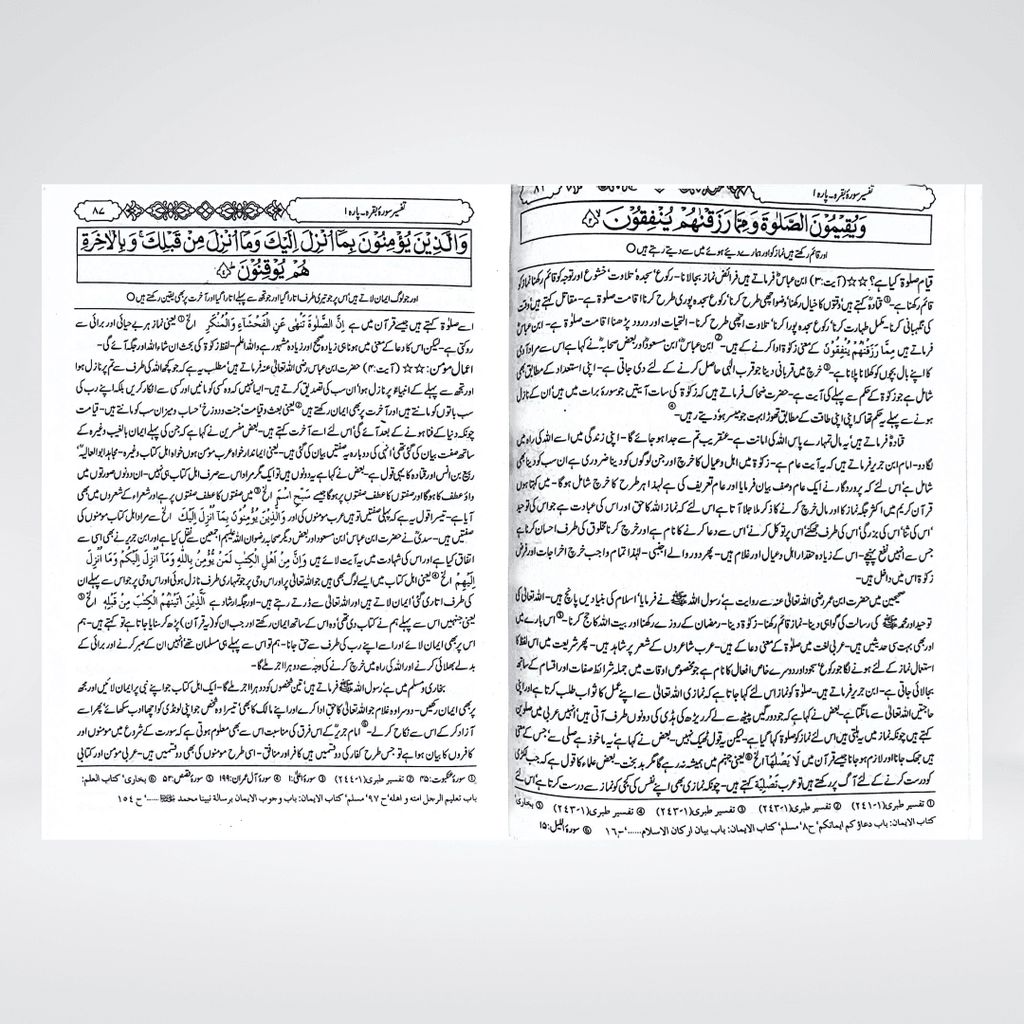 تفسیر سورۂ بقرہ۔ پارہ ۱
وَيُقِيْمُوْنَ الصَّلٰوةَ وَمِمَّا رَزَقْنٰهُمْ يُنْفِقُوْنَ
اور قائم رکھتے ہیں نماز کو اور ہمارے دیئے ہوئے میں سے دیتے رہتے ہیں ○
قیام صلوٰۃ کیا ہے؟ ☆☆ (آیت:۳) ابن عباسؓ فرماتے ہیں فرائض نماز بجالانا۔ رکوع' سجدہ' تلاوت' خشوع اور توجہ کو قائم رکھنا نماز کو
قائم رکھنا ہے۔① قتادہؒ کہتے ہیں' وقتوں کا خیال رکھنا' وضو اچھی طرح کرنا' رکوع سجدہ پوری طرح کرنا اقامت صلوٰۃ ہے۔ مقاتل کہتے ہیں' وقت
کی نگہبانی کرنا۔ مکمل طہارت کرنا' رکوع' سجدہ پورا کرنا' تلاوت اچھی طرح کرنا۔ التحیات اور درود پڑھنا اقامت صلوٰۃ ہے۔ ابن عباسؓ
فرماتے ہیں مِمَّا رَزَقْنٰهُمْ يُنْفِقُوْنَ کے معنی زکوٰۃ ادا کرنے کے ہیں۔② ابن عباسؓ' ابن مسعودؓ اور بعض صحابہؓ نے کہا ہے اس سے مراد آدمی
کا اپنے بال بچوں کو کھلانا پلانا ہے۔③ خرچ میں قربانی دینا جو قرب الٰہی حاصل کرنے کے لئے دی جاتی ہے۔ اپنی استعداد کے مطابق بھی
شامل ہے جو زکوٰۃ کے حکم سے پہلے کی آیت ہے۔ حضرت ضحاک فرماتے ہیں کہ زکوٰۃ کی سات آیتیں جو سورۂ برات میں ہیں' ان کے نازل
ہونے سے پہلے یہ حکم تھا کہ اپنی اپنی طاقت کے مطابق تھوڑا بہت جو میسر ہو دیتے رہیں۔④
قتادہ فرماتے ہیں' یہ مال تمہارے پاس اللہ کی امانت ہے۔ عنقریب تم سے جدا ہو جائے گا۔ اپنی زندگی میں اسے اللہ کی راہ میں
لگا دو۔ امام ابن جریر فرماتے ہیں کہ یہ آیت عام ہے۔ زکوٰۃ میں اہل و عیال کا خرچ اور جن لوگوں کو دینا ضروری ہے ان سب کو دینا بھی
شامل ہے' اس لئے کہ پروردگار نے ایک عام وصف بیان فرمایا اور عام تعریف کی ہے لہٰذا ہر طرح کا خرچ شامل ہوگا۔ میں کہتا ہوں
قرآن کریم میں اکثر جگہ نماز کا اور مال خرچ کرنے کا ذکر ملا جلا آتا ہے اس لئے کہ نماز اللہ کا حق اور اس کی عبادت ہے جو اس کی توحید'
اس کی ثنا' اس کی بزرگی' اس کی طرف جھکنے' اس پر توکل کرنے' اس سے دعا کرنے کا نام ہے اور خرچ کرنا مخلوق کی طرف احسان کرنا ہے
جس سے انہیں نفع پہنچے۔ اس کے زیادہ حقدار اہل و عیال اور غلام ہیں۔ پھر دور والے اجنبی۔ لہٰذا تمام واجب خرچ اخراجات اور فرض
زکوٰۃ اس میں داخل ہیں۔
صحیحین میں حضرت ابن عمر رضی اللہ تعالیٰ عنہ سے روایت ہے' رسول اللہ ﷺ نے فرمایا' اسلام کی بنیادیں پانچ ہیں۔ اللہ تعالیٰ کی
توحید اور محمد ﷺ کی رسالت کی گواہی دینا۔ نماز قائم رکھنا۔ زکوٰۃ دینا۔ رمضان کے روزے رکھنا اور بیت اللہ کا حج کرنا۔⑤ اس بارے میں
اور بھی بہت سی حدیثیں ہیں۔ عربی لغت میں صلوٰۃ کے معنی دعا کے ہیں۔ عرب شاعروں کے شعر اس پر شاہد ہیں۔ پھر شریعت میں اس لفظ کا
استعمال نماز کے لئے ہونے لگا جو رکوع' سجود اور دوسرے خاص افعال کا نام ہے جو مخصوص اوقات میں جملہ شرائط صفات اور اقسام کے ساتھ
بجالائی جاتی ہے۔ ابن جریر فرماتے ہیں۔ صلوٰۃ کو نماز اس لئے کہا جاتا ہے کہ نمازی اللہ تعالیٰ سے اپنے عمل کا ثواب طلب کرتا ہے اور اپنی
حاجتیں اللہ تعالیٰ سے مانگتا ہے۔ بعض نے کہا ہے کہ جو دو رگیں پیٹھ سے لے کر ریڑھ کی ہڈی کی دونوں طرف آتی ہیں' انہیں عربی میں صلوین
کہتے ہیں چونکہ نماز میں یہ ہلتی ہیں اس لئے نماز کو صلوٰۃ کہا گیا ہے۔ لیکن یہ قول ٹھیک نہیں۔ بعض نے کہا ہے' یہ ماخوذ ہے صلی سے' جس کے معنی
ہیں چپک جانا اور لازم ہو جانا جیسے قرآن میں لَا يَصْلٰهَآ الخ⑥ یعنی جہنم میں ہمیشہ نہ رہے گا مگر بدبخت۔ بعض علماء کا قول ہے کہ جب لکڑی
کو درست کرنے کے لئے آگ پر رکھتے ہیں تو عرب تَصْلِيَة کہتے ہیں۔ چونکہ نمازی بھی اپنے نفس کی کجی کو نماز سے درست کرتا ہے' اس لئے
① تفسیر طبری (۱-۲۴۱) ② تفسیر طبری (۱-۲۴۳) ③ تفسیر طبری (۱-۲۴۳) ④ تفسیر طبری (۱-۲۴۳) ⑤ بخاری'
کتاب الایمان: باب دعاؤکم ایمانکم' ح ۸' مسلم' کتاب الایمان: باب بیان ارکان الاسلام......' ح ۱۶ ⑥ سورۂ اللیل: ۱۵
تفسیر سورۂ بقرہ۔ پارہ ۱
۸۷
وَالَّذِيْنَ يُؤْمِنُوْنَ بِمَآ اُنْزِلَ اِلَيْكَ وَمَآ اُنْزِلَ مِنْ قَبْلِكَ ۚ وَبِالْاٰخِرَةِ
هُمْ يُوْقِنُوْنَ
اور جو لوگ ایمان لاتے ہیں اس پر جو تیری طرف اتارا گیا اور جو تجھ سے پہلے اتارا گیا اور آخرت پر بھی یقین رکھتے ہیں ○
اسے صلوٰۃ کہتے ہیں جیسے قرآن میں ہے اِنَّ الصَّلٰوةَ تَنْهٰى عَنِ الْفَحْشَآءِ وَالْمُنْكَرِ الخ① یعنی نماز ہر بے حیائی اور برائی سے
روکتی ہے۔ لیکن اس کا دعا کے معنی میں ہونا ہی زیادہ صحیح اور زیادہ مشہور ہے واللہ اعلم۔ لفظ زکوٰۃ کی بحث ان شاء اللہ اور جگہ آئے گی۔
اعمال مومن: ☆☆ (آیت:۴) حضرت ابن عباس رضی اللہ تعالیٰ عنہ فرماتے ہیں' مطلب یہ ہے کہ جو کچھ اللہ کی طرف سے تم پر نازل ہوا
اور تجھ سے پہلے کے انبیاء پر نازل ہوا' ان سب کی تصدیق کرتے ہیں۔ ایسا نہیں کہ وہ کسی کو مانیں اور کسی سے انکار کریں بلکہ اپنے رب کی
سب باتوں کو مانتے ہیں اور آخرت پر بھی ایمان رکھتے ہیں② یعنی بعث و قیامت' جنت و دوزخ' حساب و میزان سب کو مانتے ہیں۔ قیامت
چونکہ دنیا کے فنا ہونے کے بعد آئے گی' اس لئے اسے آخرت کہتے ہیں۔ بعض مفسرین نے کہا ہے کہ جن کی پہلے ایمان بالغیب وغیرہ کے
ساتھ صفت بیان کی گئی تھی' انہی کی دوبارہ یہ صفتیں بیان کی گئی ہیں۔ یعنی ایماندار خواہ عرب مومن ہوں خواہ اہل کتاب وغیرہ۔ مجاہد' ابوالعالیہ
ربیع بن انس اور قتادہ کا یہی قول ہے۔ بعض نے کہا ہے' یہ دونوں ہیں تو ایک مگر مراد اس سے صرف اہل کتاب ہی نہیں۔ ان دونوں صورتوں میں
واؤ عطف کا ہوگا اور صفتوں کا عطف صفتوں پر ہوگا جیسے سَبِّحِ اسْمَ الخ③ میں صفتوں کا عطف صفتوں پر ہے اور شعراء کے شعروں میں بھی
آیا ہے۔ تیسرا قول یہ ہے کہ پہلی صفتیں تو ہیں عرب مومنوں کی اور وَالَّذِيْنَ يُؤْمِنُوْنَ بِمَآ اُنْزِلَ اِلَيْكَ الخ سے مراد اہل کتاب مومنوں کی
صفتیں ہیں۔ سدی نے حضرت ابن عباس ابن مسعود اور بعض دیگر صحابہ رضوان اللہ علیہم اجمعین سے نقل کیا ہے اور ابن جریر نے بھی اسی سے
اتفاق کیا ہے اور اس کی شہادت میں یہ آیت لائے ہیں وَاِنَّ مِنْ اَهْلِ الْكِتٰبِ لَمَنْ يُّؤْمِنُ بِاللّٰهِ وَمَآ اُنْزِلَ اِلَيْكُمْ وَمَآ اُنْزِلَ
اِلَيْهِمْ الخ④ یعنی اہل کتاب میں ایسے لوگ بھی ہیں جو اللہ تعالیٰ پر اور اس وحی پر جو تمہاری طرف نازل ہوئی اور اس وحی پر جو اس سے پہلے ان
کی طرف اتاری گئی' ایمان لاتے ہیں اور اللہ تعالیٰ سے ڈرتے رہتے ہیں۔ اور جگہ ارشاد ہے اَلَّذِيْنَ اٰتَيْنٰهُمُ الْكِتٰبَ مِنْ قَبْلِهٖ الخ⑤
یعنی جنہیں اس سے پہلے ہم نے کتاب دی تھی' وہ اس کے ساتھ ایمان رکھتے اور جب ان کو (یہ قرآن) پڑھ کر سنایا جاتا ہے تو کہتے ہیں۔ ہم
اس پر بھی ایمان لائے اور اسے اپنے رب کی طرف سے حق جانا۔ ہم تو اس سے پہلے ہی مسلمان تھے' انہیں ان کے صبر کرنے اور برائی کے
بدلے بھلائی کرنے اور اللہ کی راہ میں خرچ کرنے کی وجہ سے دوہرا اجر ملے گا۔
بخاری و مسلم میں ہے' رسول اللہ ﷺ فرماتے ہیں' تین شخصوں کو دوہرا اجر ملے گا۔ ایک اہل کتاب جو اپنے نبی پر ایمان لائیں اور مجھ
پر بھی ایمان رکھیں۔ دوسرا وہ غلام جو اللہ تعالیٰ کا حق ادا کرے اور اپنے مالک کا بھی' تیسرا وہ شخص جو اپنی لونڈی کو اچھا ادب سکھائے' پھر اسے
آزاد کرکے اس سے نکاح کر لے۔⑥ امام جریر کے اس فرق کی مناسبت اس سے بھی معلوم ہوتی ہے کہ سورت کے شروع میں مومنوں اور
کافروں کا بیان ہوا ہے تو جس طرح کفار کی دو قسمیں ہیں کافر اور منافق۔ اسی طرح مومنوں کی بھی دو قسمیں ہیں۔ عربی مومن اور کتابی
① سورۂ عنکبوت: ۴۵ ② تفسیر طبری (۱-۲۴۴) ③ سورۂ اعلیٰ: ۱ ④ سورۂ آل عمران: ۱۹۹ ⑤ سورۂ قصص: ۵۲ ⑥ بخاری' کتاب العلم:
باب تعلیم الرجل امته و اهله' ح ۹۷ مسلم' کتاب الایمان: باب وجوب الایمان برسالة نبینا محمد ﷺ......' ح ۱۵۴